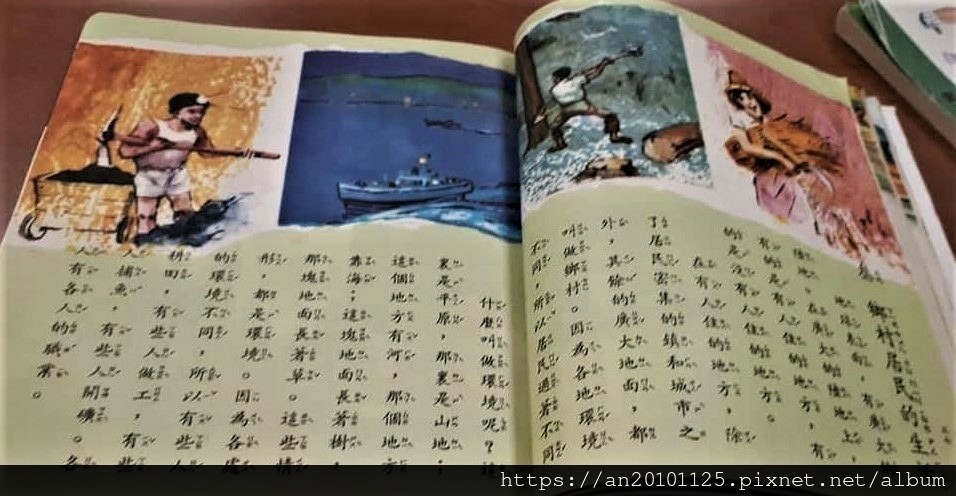 鄉村居民的生
地表面,有廣大
陸地。在廣大的陸地上,有
有的是有人住的地方,
的是沒有人住的地方。
在有人住的地方,除
了居民密集的鎮和城市之
外,其餘的廣大地面,都
叫做鄉村。因為各地環境
不同,所以居民過著不同
什麼叫做環境呢?
裏是平原,那裏是山地;
這個地方有河,那個地方
靠海;這塊地面長著樹,
那塊地面長著草。這些情
形,都是環境。因為各處
的環境不同,所以有些人
耕田,有些人做工,有些
人捕魚,有些人開礦。各
人有各人的職業。
https://an20101125.pixnet.net/album